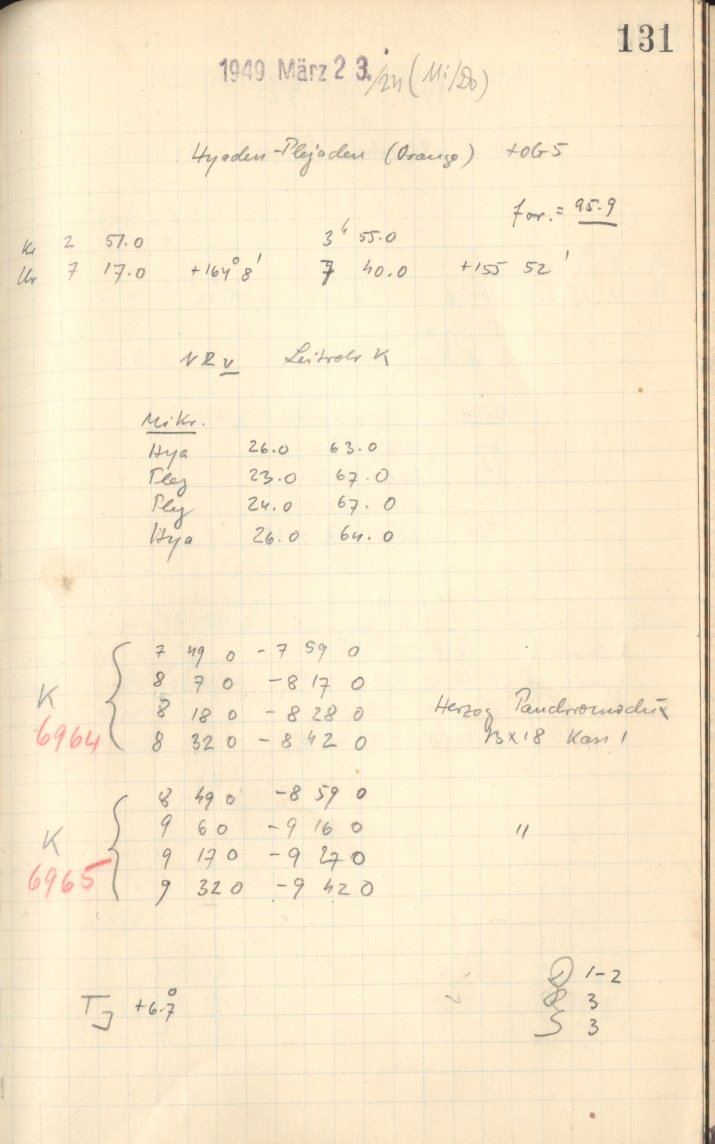 131
1949 März 23./24 (Mi/Do)
Hyaden-Plejaden (Orange) +OG5
for. = 95.9
Kr 2 51.0 3h 55.0
Ur 7 17.0 +164° 8' 7 40.0 +155 52'
NRv Leitrohr K
Mikr.
Hya 26.0 63.0
Plej 23.0 67.0
Plej 24.0 67.0
Hya 26.0 64.0
7 49 0 - 7 59 0
8 7 0 - 8 17 0
K 8 18 0 - 8 28 0 Herzog Panchromatix
6964 8 32 0 - 8 42 0 13x18 Kass 1
8 49 0 - 8 59 0
K 9 6 0 - 9 16 0 "
6965 9 17 0 - 9 27 0
9 32 0 - 9 42 0
D 1-2
TJ +6.7° R 3
S 3